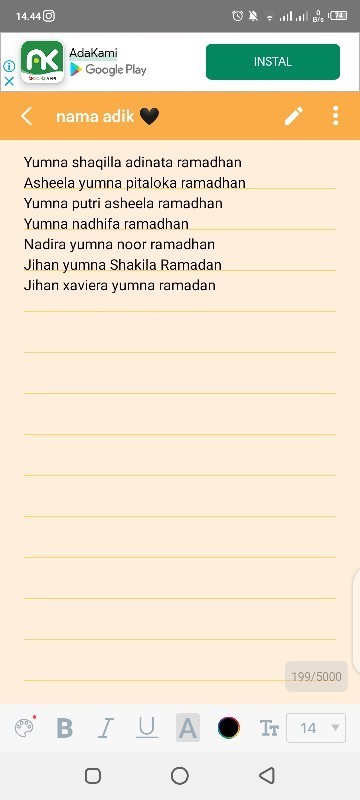 14.44
0
B/s
74
AdaKami
Google Play
INSTAL
nama adik 🖤
Yumna shaqilla adinata ramadhan
Asheela yumna pitaloka ramadhan
Yumna putri asheela ramadhan
Yumna nadhifa ramadhan
Nadira yumna noor ramadhan
Jihan yumna Shakila Ramadan
Jihan xaviera yumna ramadan
199/5000
B I U A TT 14